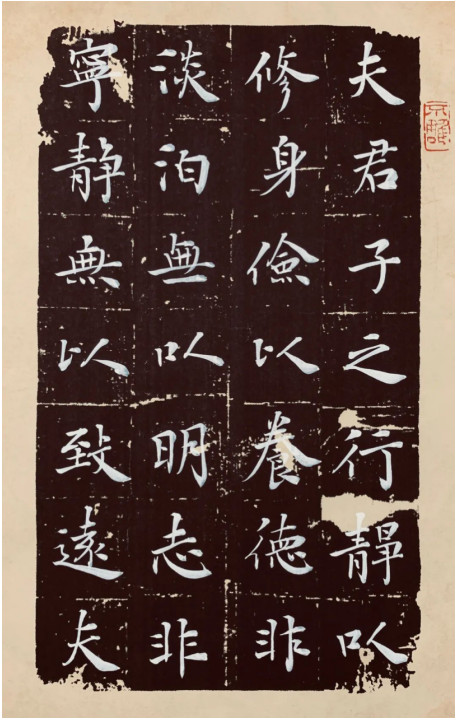 夫君子之行靜以
修身儉以養德非
淡泊無以明志非
寧静無以致遠夫